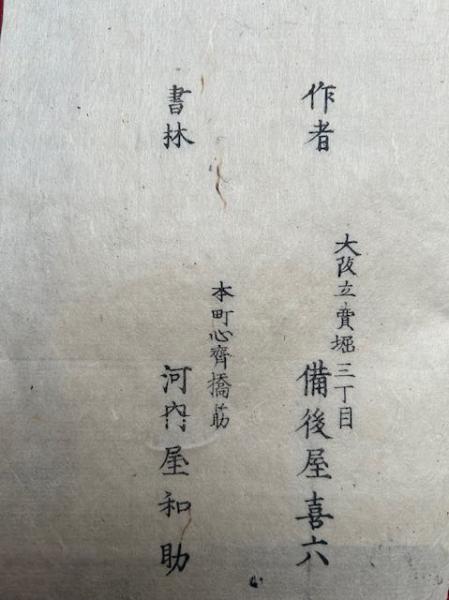 作者
大阪立賣堀三丁目
備後屋喜六
書林
本町心齊橋筋
河内屋和助